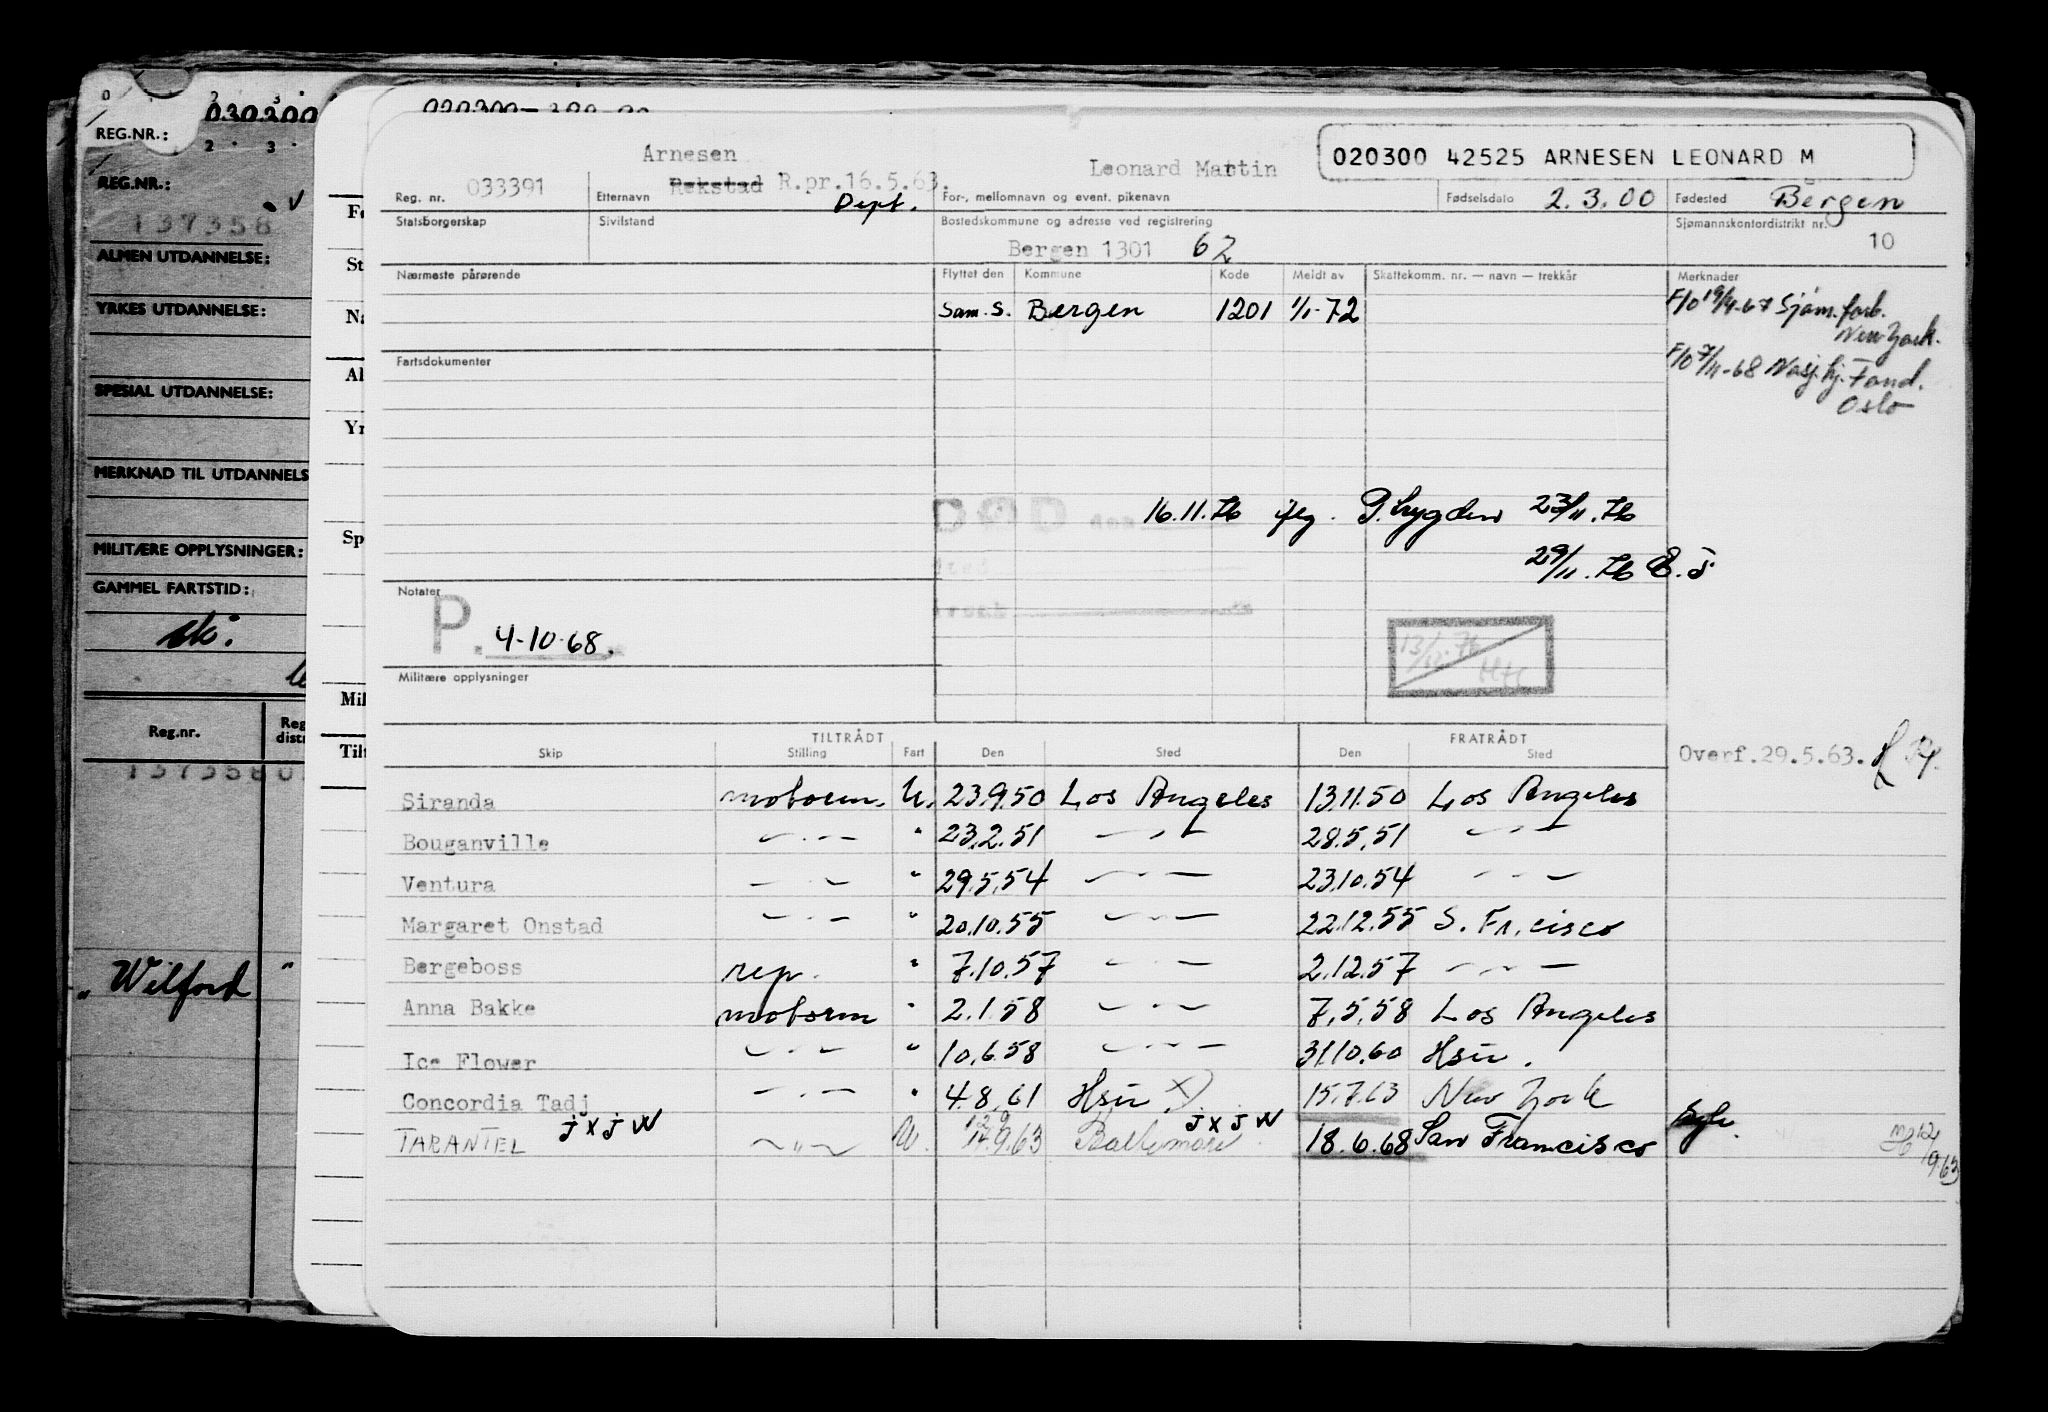 REG.NR.:
030300
REG.NR.:
137358
ALMEN UTDANNELSE:
YRKES UTDANNELSE:
SPESIAL UTDANNELSE:
MERKNAD TIL UTDANNELS
MILITÆRE OPPLYSNINGER:
GAMMEL FARTSTID:
Reg.nr.
Reg
distr
137358
"Wilford"
St
Al
Sp
Mil
Tilt
Arnesen
Leonard Martin
020300 42525 ARNESEN LEONARD M
Reg. nr. 033391 Etternavn Rekstad R.pr.16.5.63. For-, mellomnavn og event. pikenavn Fødselsdato 2.3.00 Fødested Bergen
Dept.
Statsborgerskap Sivilstand Bostedskommune og adresse ved registrering Sjømannskontordistrikt nr.
Bergen 1301 62 10
Nærmeste pårørende Flyttet den Kommune Kode Meldt av Skattekomm. nr. — navn — trekkår Merknader
Sam.S. Bergen 1201 1/1-72
F/o 19/4-67 Sjøm.forb.
New York.
Fartsdokumenter
F/o 7/11-68 Nasj.hj. Fond.
Oslo
DØD den 16.11.76 iflg. P. Lygden 23/11.76
29/11.76
Notater
P. 4-10-68.
13/12-76
Militære opplysninger
TILTRÅDT FRATRÅDT
Skip Stilling Fart Den Sted Den Sted
Overf.29.5.63.
Siranda motorm. U. 23.9.50 Los Angeles 13.11.50 Los Angeles
Bouganville —·— " 23.2.51 —·— 28.5.51 —·—
Ventura —·— " 29.5.54 —·— 23.10.54 —·—
Margaret Onstad —·— " 20.10.55 —·— 22.12.55 S. Fr.cisco
Bergeboss rep. " 7.10.57 —·— 2.12.57 —·—
Anna Bakke motorm " 2.1.58 —·— 7.5.58 Los Angeles
Ice Flower —·— " 10.6.58 —·— 31.10.60 Hsiv.
Concordia Tadj —·— " 4.8.61 Hsiv X) 15.7.63 New York
J X J W J X J W
TARANTEL —"— U. 9.63 Baltimore 18.6.68 San Francisco